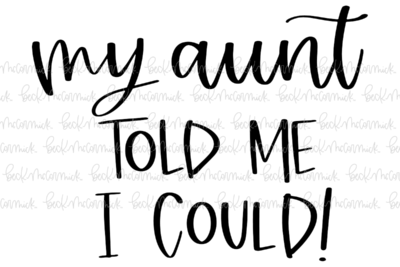 my aunt
TOLD ME
I COULD!